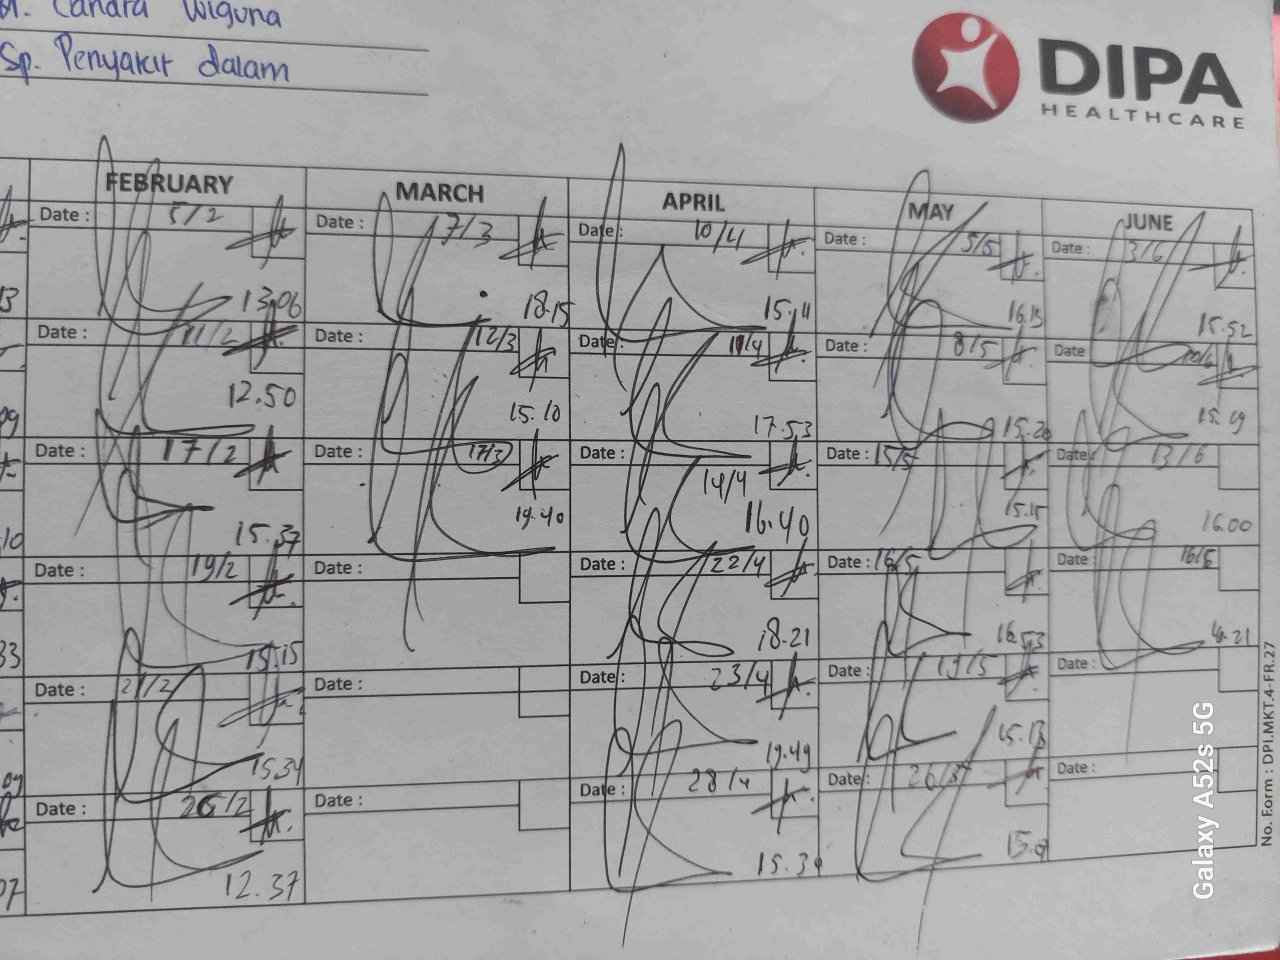 Candra Wiguna
Sp. Penyakit dalam
DIPA
HEALTHCARE
FEBRUARY MARCH APRIL MAY JUNE
Date : 5/2 Date : 7/3 Date : 10/4 Date : 5/5 Date : 3/6
13.06 18.15 15.11 15.52
Date : 11/2 Date : 12/3 Date : 11/4 Date : 8/5 Date
12.50 15.10 17.53 15.19
Date : 17/2 Date : 17/3 Date : 14/4 Date : 15/5 Date : 13/6
15.37 19.40 16.40 15.15 16.00
Date : 19/2 Date : Date : 22/4 Date : Date :
15.15 18.21 16.53
Date : 21/2 Date : Date : 23/4 Date : Date :
15.34 19.49 15.13
Date : 26/2 Date : Date : 28/4 Date : Date :
12.37
No. Form : DPI.MKT.4-FR.27
Galaxy A52s 5G